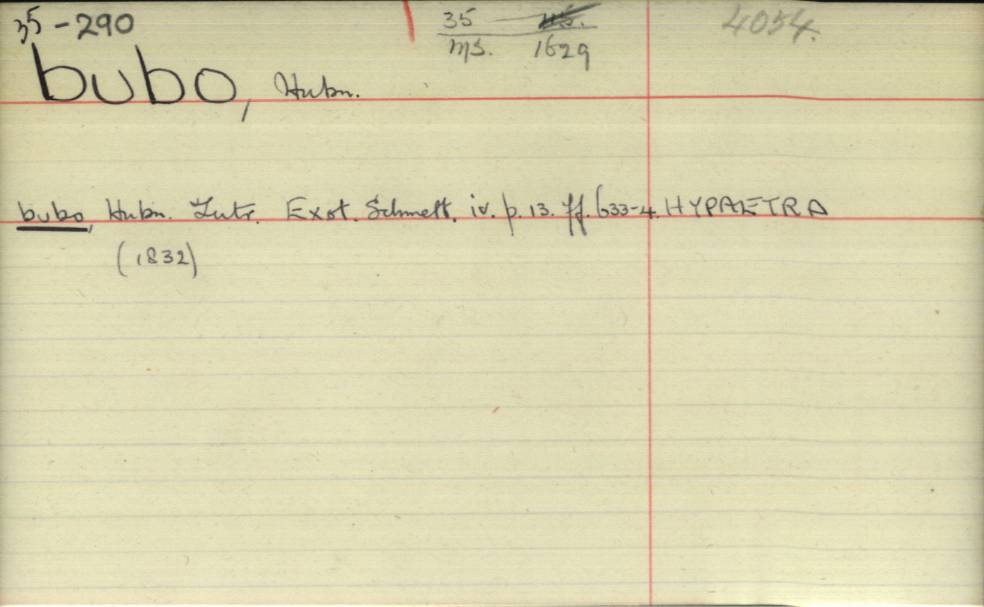 35-290
35 MS.
MS. 1629
4054.
bubo, Hubn.
bubo, Hubn. Zutr. Exot. Schmett. iv. p. 13. ff. 633-4. HYPAETRA
(1832)